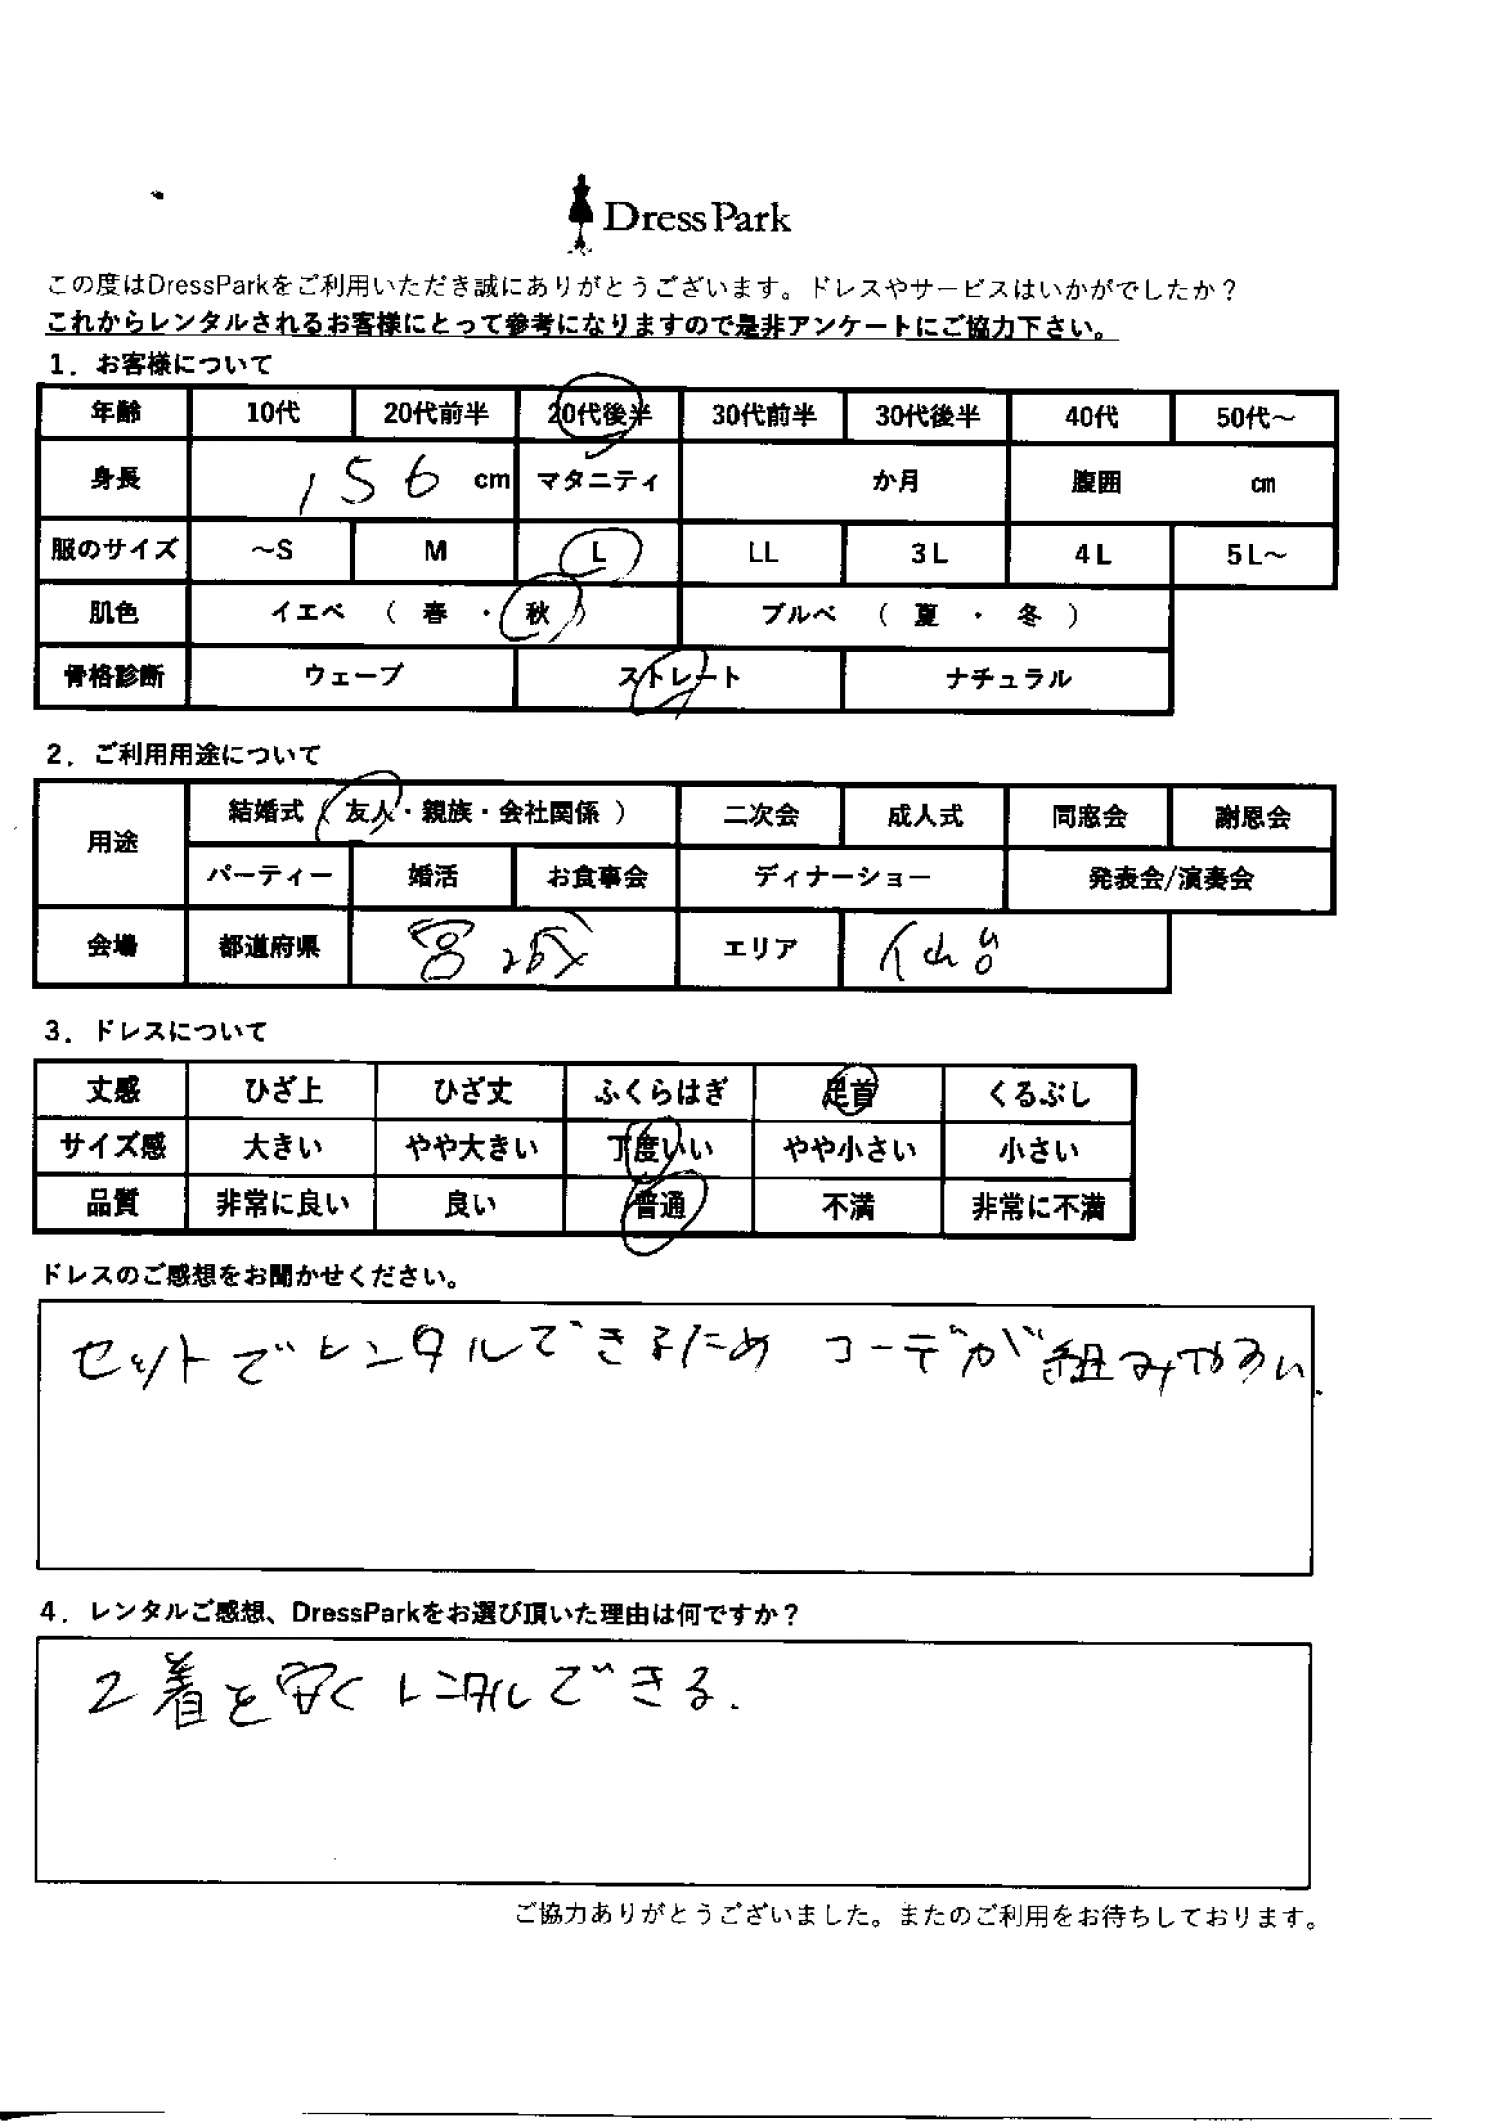 Dress Park
この度はDressParkをご利用いただき誠にありがとうございます。ドレスやサービスはいかがでしたか？
これからレンタルされるお客様にとって参考になりますので是非アンケートにご協力下さい。
1．お客様について
年齢 10代 20代前半 20代後半 30代前半 30代後半 40代 50代～
身長 156 cm マタニティ か月 腹囲 cm
服のサイズ ～S M L LL 3L 4L 5L～
肌色 イエベ （ 春 ・ 秋 ） ブルベ （ 夏 ・ 冬 ）
骨格診断 ウェーブ ストレート ナチュラル
2．ご利用用途について
用途 結婚式（ 友人・親族・会社関係 ） 二次会 成人式 同窓会 謝恩会
パーティー 婚活 お食事会 ディナーショー 発表会/演奏会
会場 都道府県 宮城 エリア 仙台
3．ドレスについて
丈感 ひざ上 ひざ丈 ふくらはぎ 足首 くるぶし
サイズ感 大きい やや大きい 丁度いい やや小さい 小さい
品質 非常に良い 良い 普通 不満 非常に不満
ドレスのご感想をお聞かせください。
セットでレンタルできるため コーデが組みやすい.
4．レンタルご感想、DressParkをお選び頂いた理由は何ですか？
2着を安くレンタルできる.
ご協力ありがとうございました。またのご利用をお待ちしております。